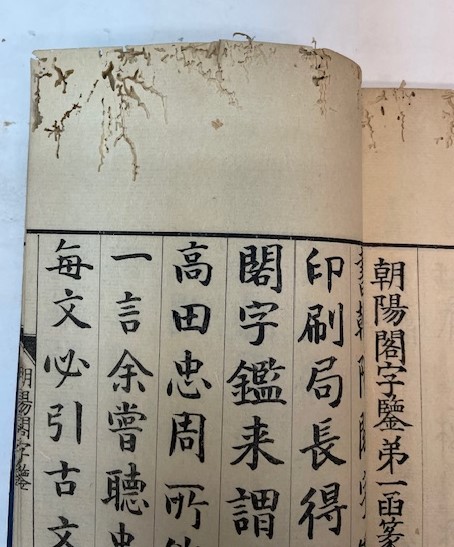 朝陽閣字鑒弟一函篆
印刷局長得
閣字鑑来謂
高田忠周所
一言余嘗聽忠
每文必引古文
朝陽閣字鑒